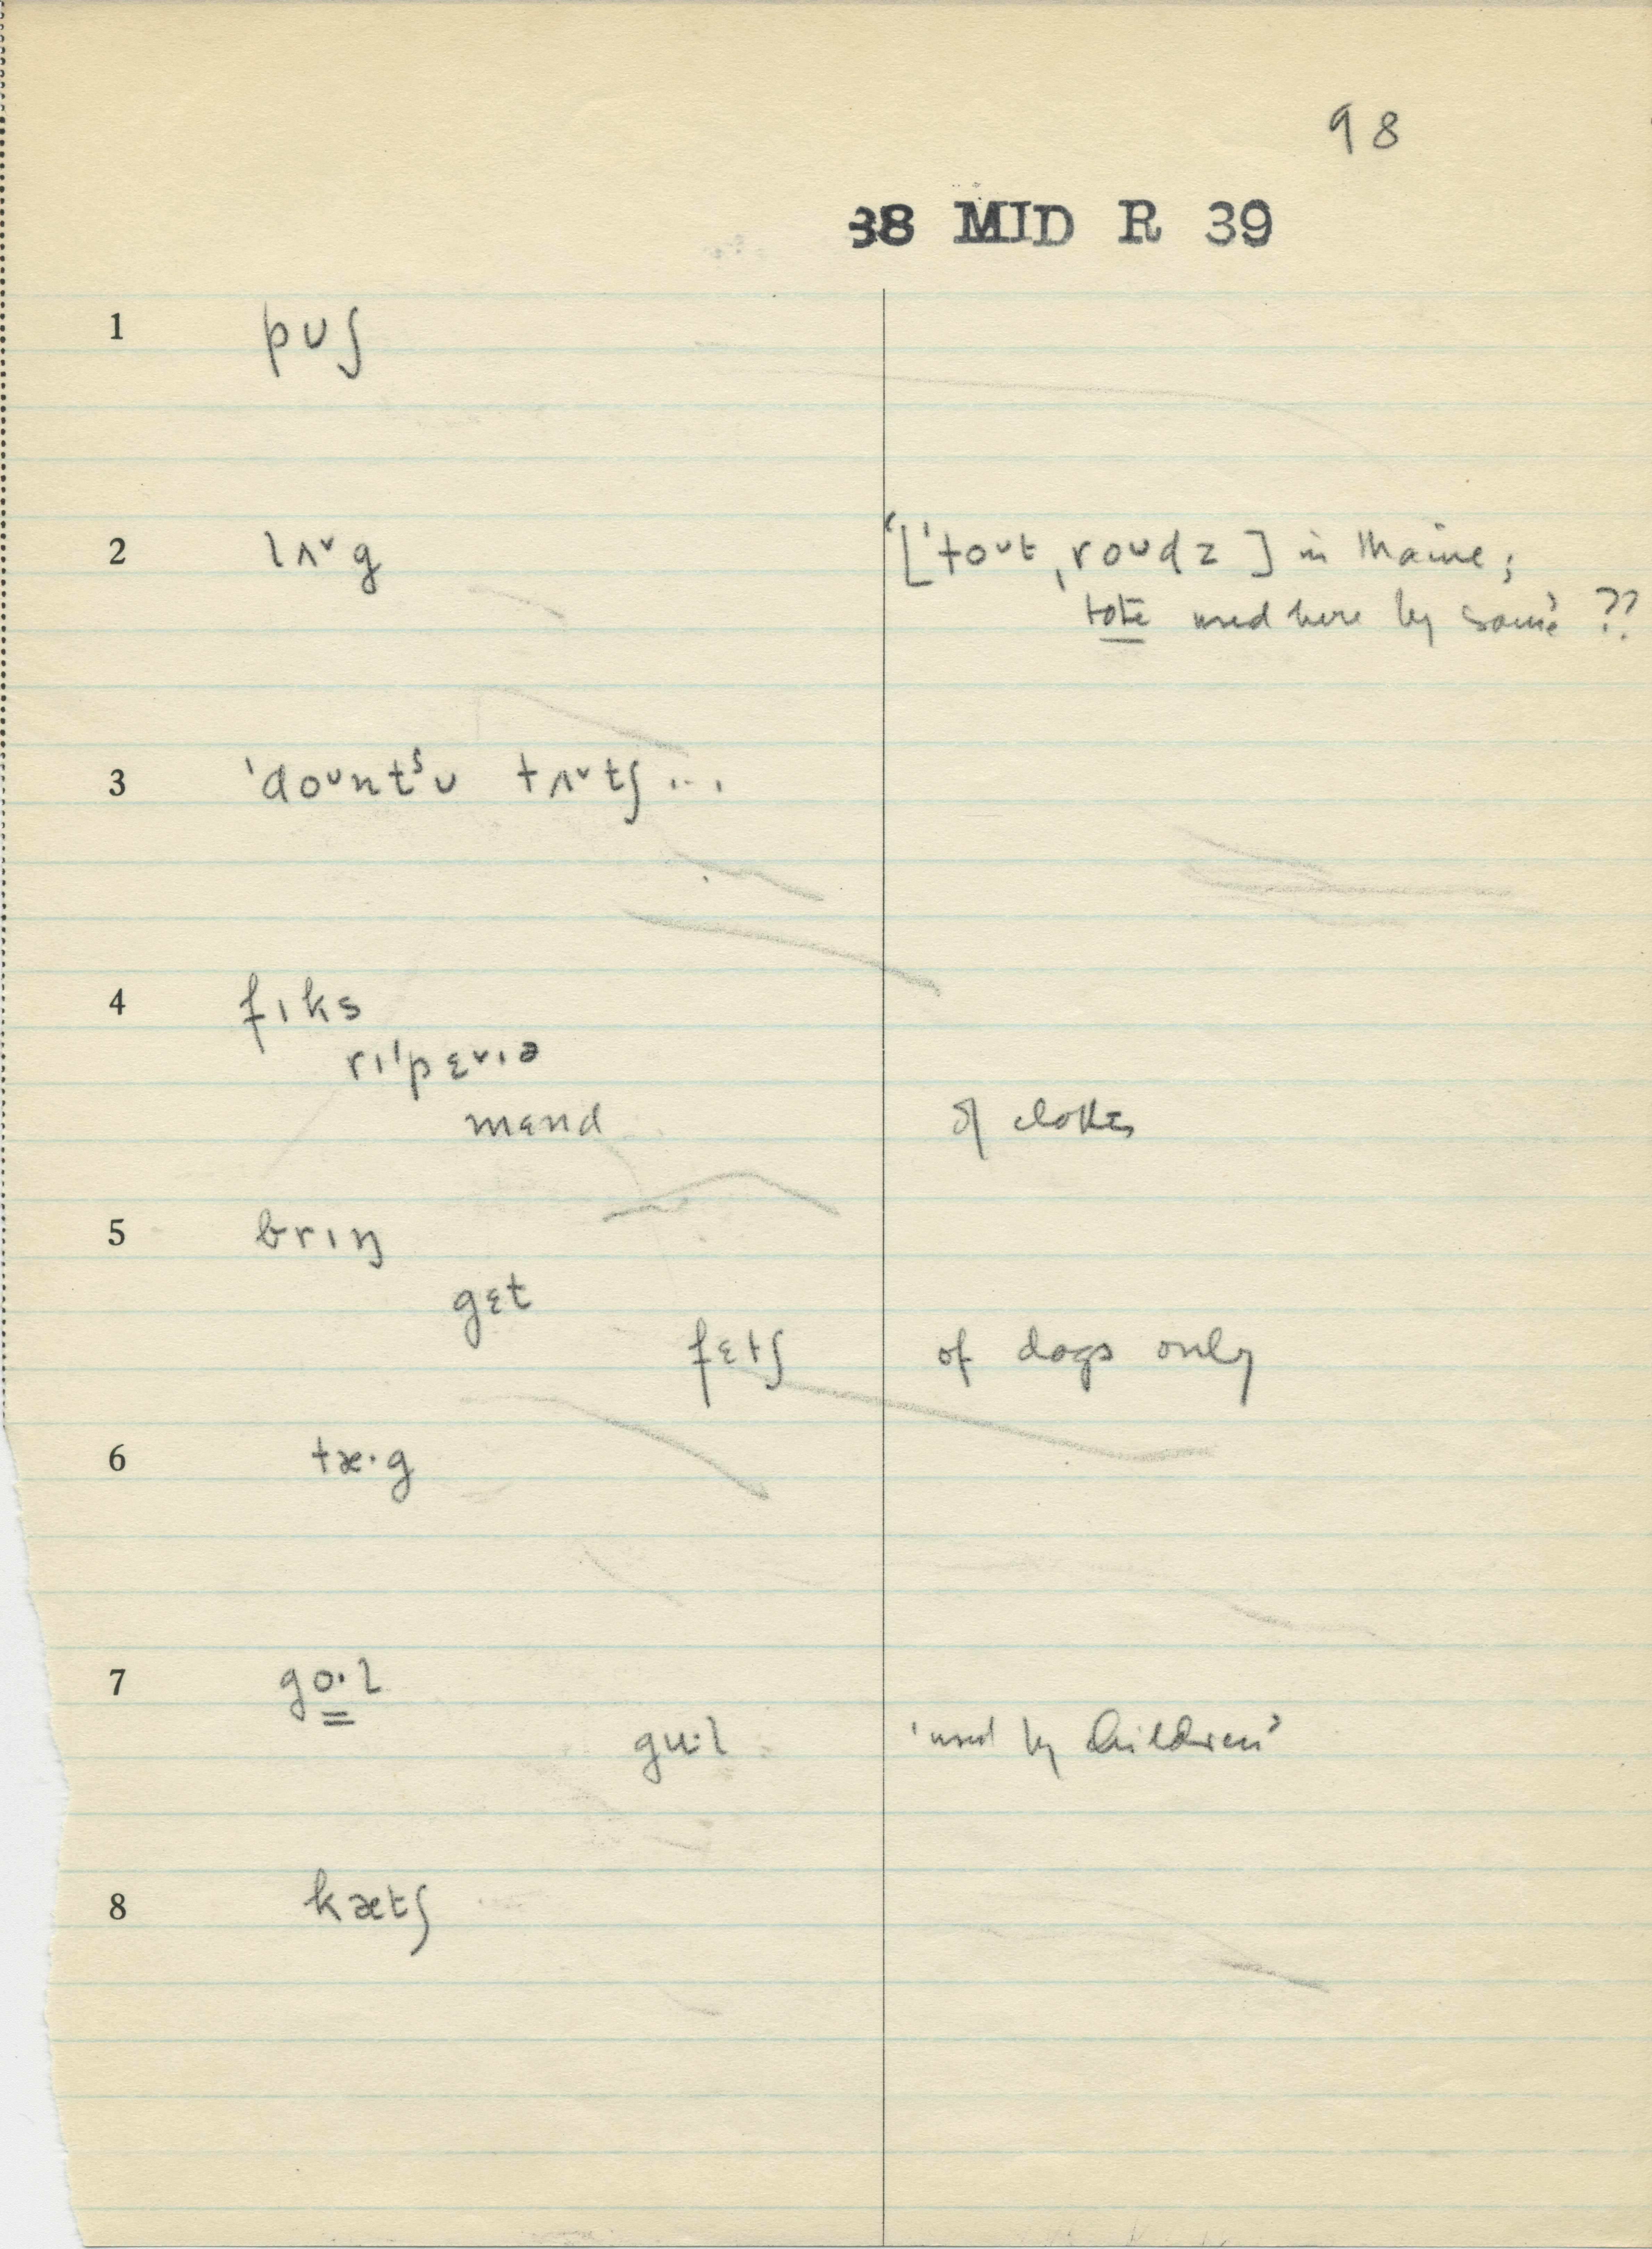 98
38 MID R 39
1 pʊʃ
2 lʌˇg ‘[ˈtoʊt ˌroʊdz] in Maine;
tote used here by some’ ??
3 ˈdoʊntˢʊ tʌˇtʃ...
4 fɪks
rɪˈpɛˇɪə
mɛnd of clothes
5 brɪŋ
gɛt
fɛtʃ of dogs only
6 tæ·g
7 go·l
gu·l ‘used by children’
8 kætʃ